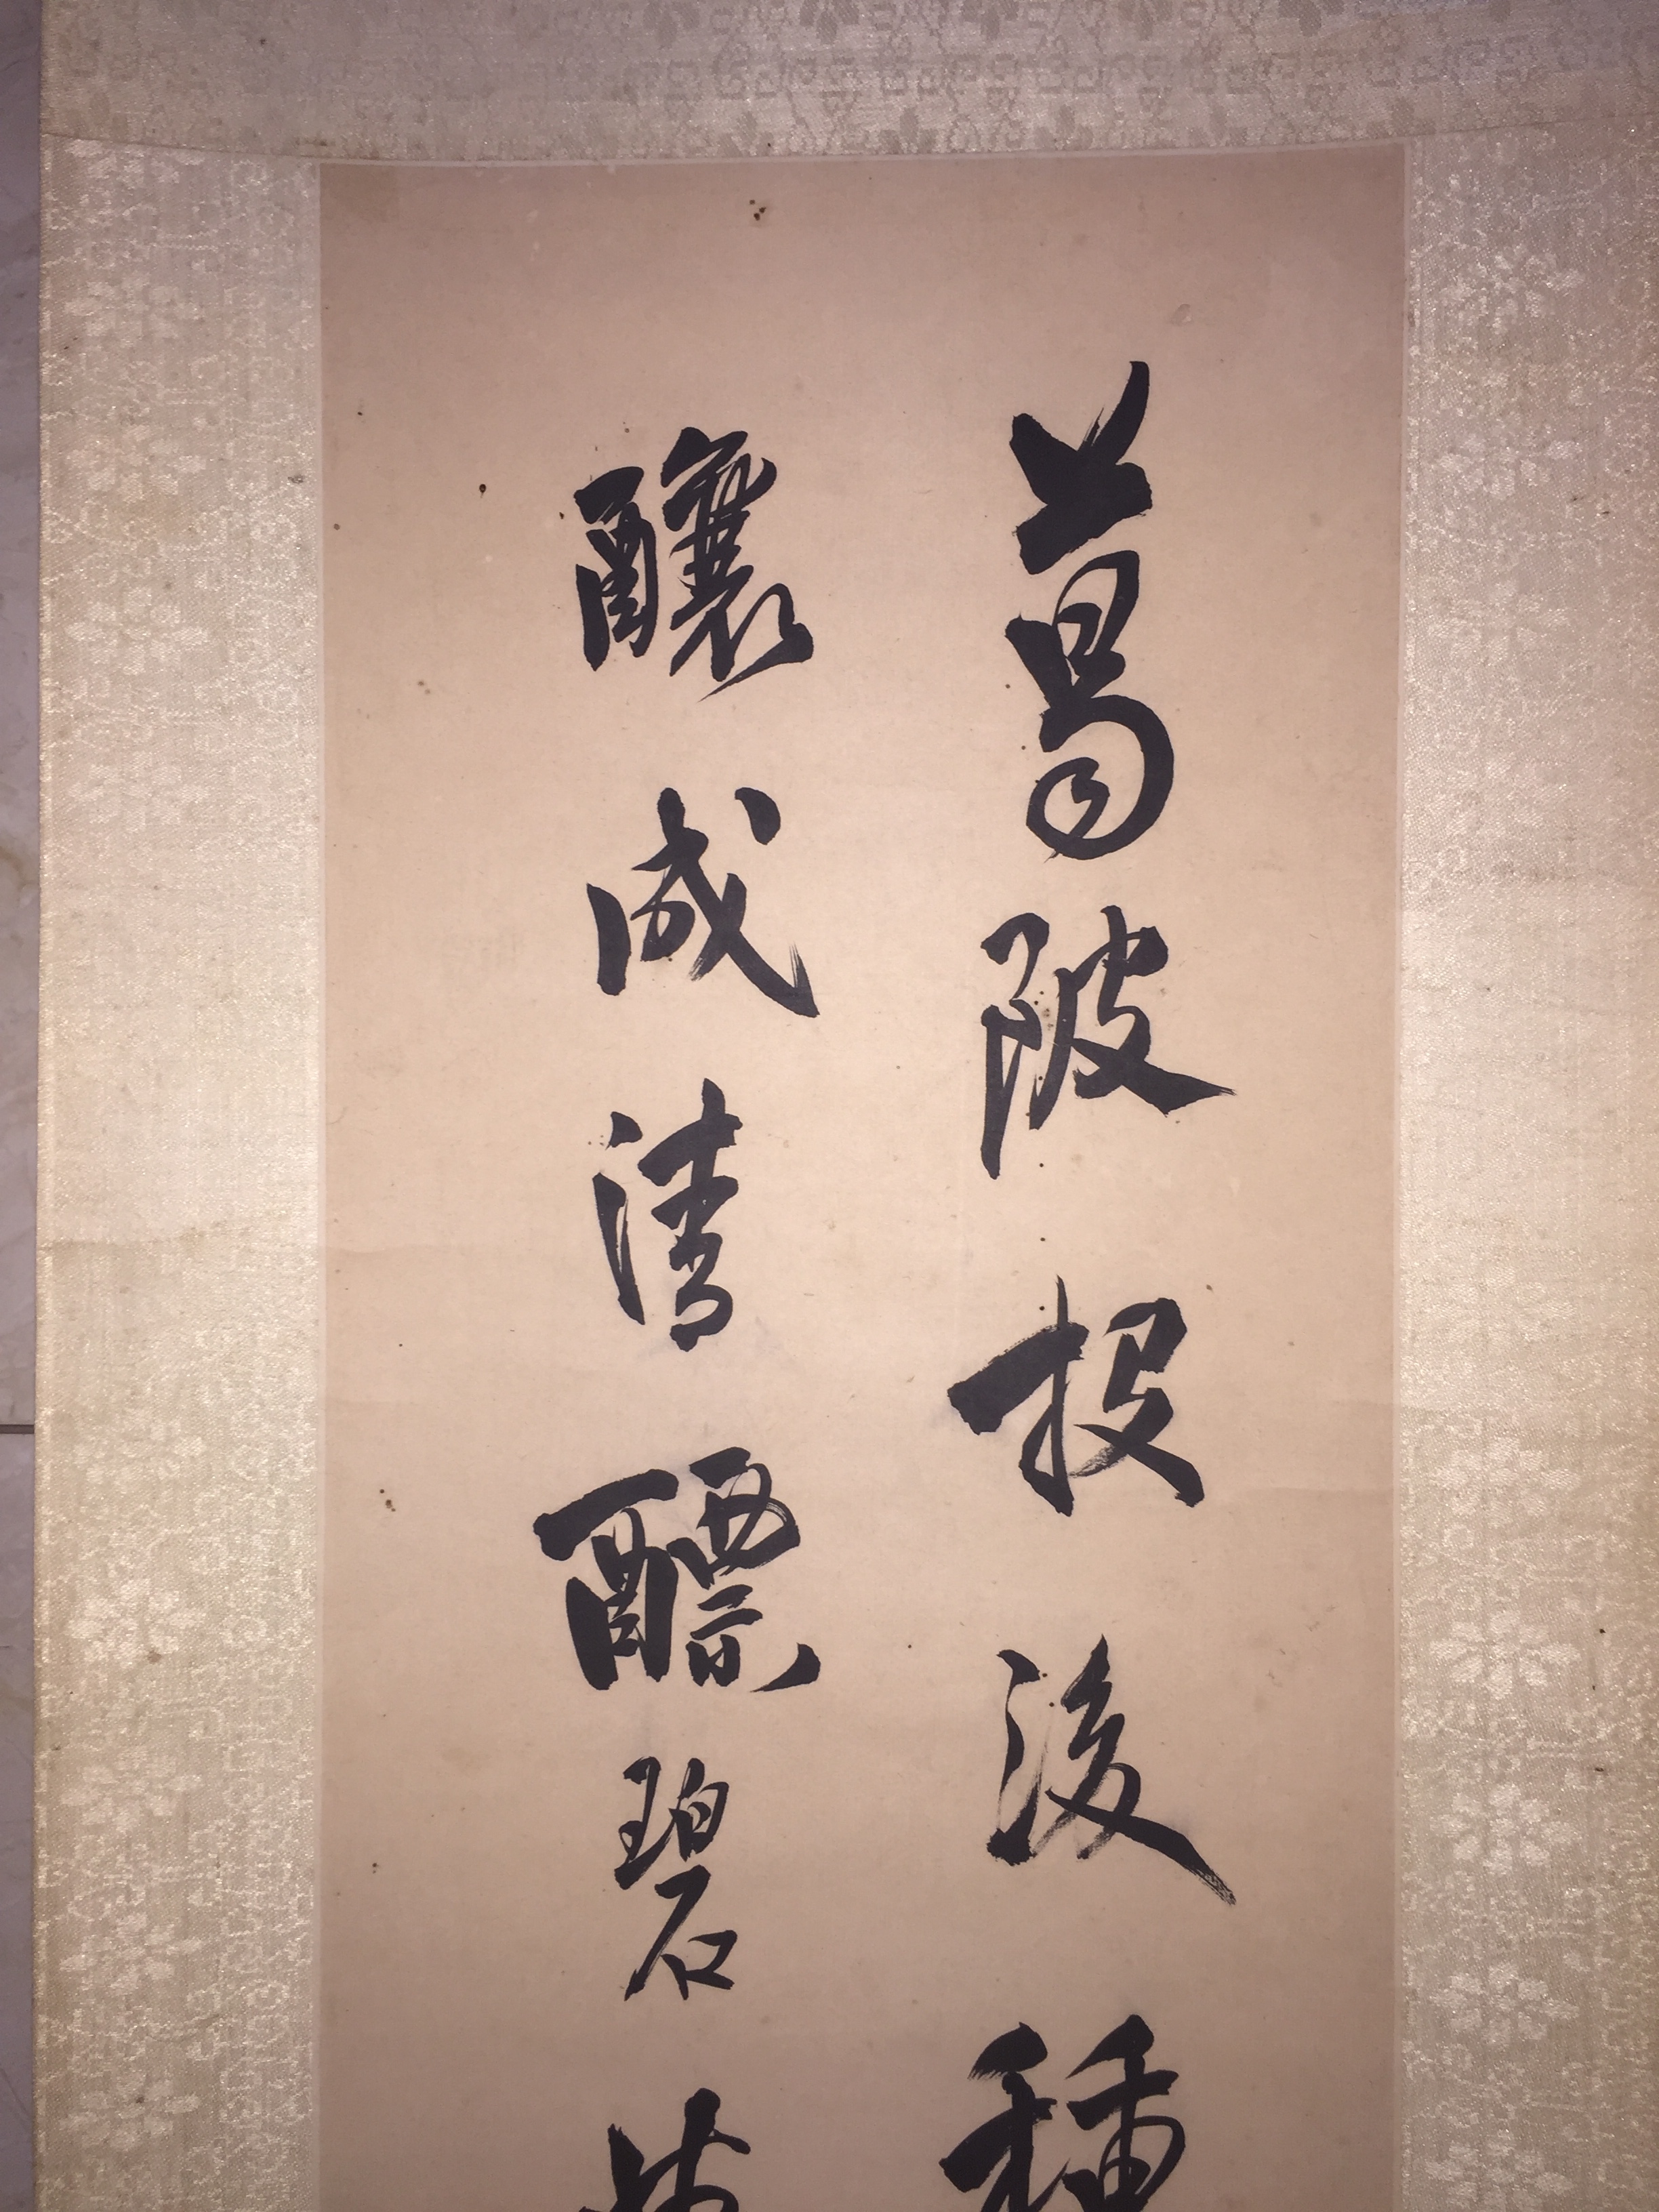 葛陂投後種
釀成清醥碧